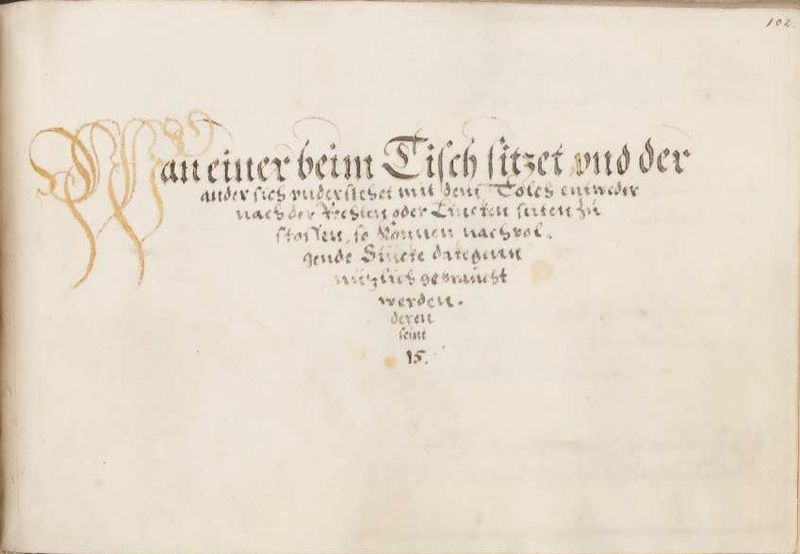 102.
Wan einer beim Tisch sitzet vnd der
ander sich vnderstehet mit dem Tolch entweder
nach der Rechten oder Lincken seiten zu
stossen, so können nachvol,
gende Stücke dargegenn
nützlich gebraucht
werden.
deren
seint
15.